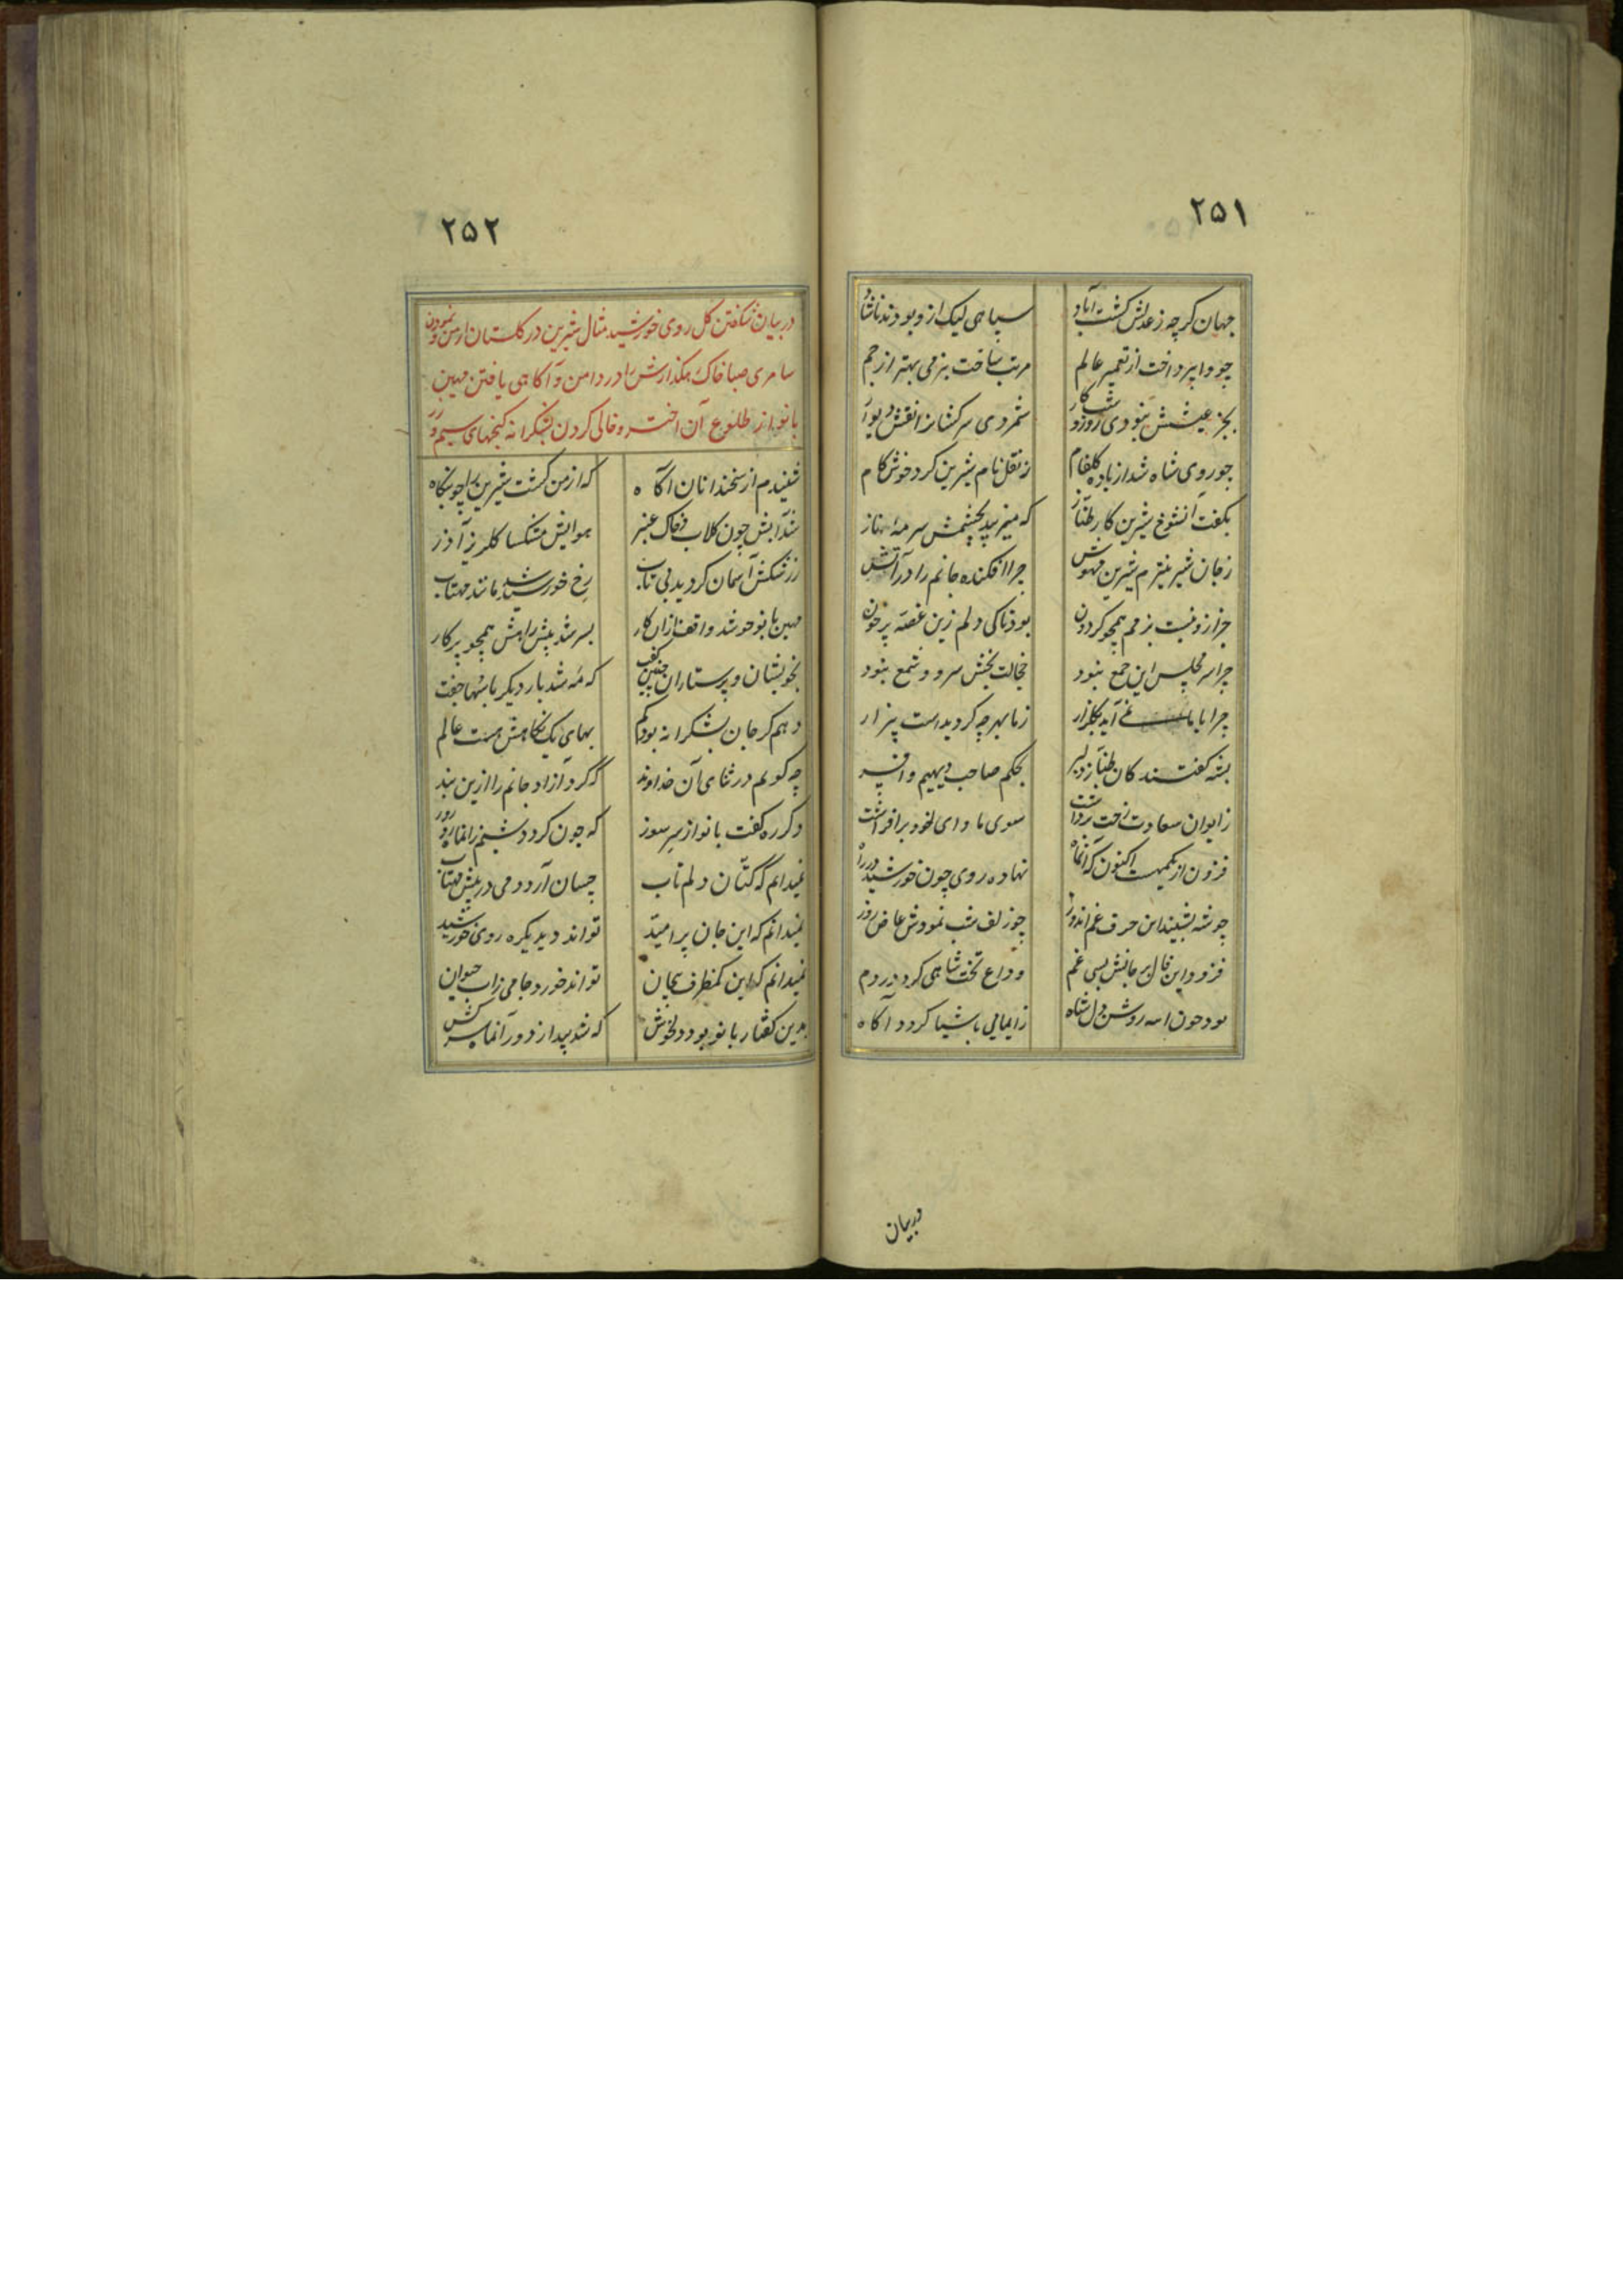 ۲۵۱
جهان گرچه ز عدلش گشت آباد سپاهی لیک ازو بودند ناشاد
چو واپرداخت از تعمیر عالم مرتب ساخت بزمی بهتر از جم
بجز عیشش نبودی روز و شب کار شمردی سرکشانرا نقش دیوار
چو روی شاه شد از باده گلفام ز نقل نام شیرین کرد خوش کام
بگفت آنشوخ شیرین کار طناز که میزیبد بچشمش سرمهٔ ناز
ز جان شیرینترم شیرین مهوش چرا افکنده جانم را در آتش
چرا زو نیست بزمم همچو گردون بود تا کی دلم زین غصه پر خون
چرا سر مجلس این جمع نبود خجالت بخش سرو و شمع نبود
چرا با ما نمی آید بگلزار ز ما بهر چه گردیداست بیزار
بشه گفتند کان طناز دلبر بحکم صاحب دیهیم و افسر
ز ایوان سعادت رخت برداشت سوی ماوای خود برافراشت
فزون از یکمهست اکنون که آنماه نهاده روی چون خورشید در راه
چو شه بشنید این حرف غم اندوز چو زلف شب نمودش عارض روز
فزود این حال بر جانش بسی غم وداع تخت شاهی کرد در دم
بود چون آینه روشن دل شاه ز ایمایی باشیا گردد آگاه
در بیان
۲۵۲
در بیان شکفتن گل روی خورشید مثال شیرین در گلستان ارمن و نمودن
سامری صبا خاک رهگذارش را در دامن و آگاهی یافتن مهین
بانو از طلوع آن اختر و خالی کردن بشکرانه گنجهای سیم و زر
شنیدم از سخندانان آگاه که ارمن گشت شیرین را چو بنگاه
شد آبش چون گلاب و خاک عنبر هوایش مشکسا گلریز آذر
ز رشکش آسمان گردید بی تاب رخ خورشید مانند مهتاب
مهین بانو چو شد واقف ازان کار بسر شد پیش راهش همچو پرگار
بخویشان و پرستاران چنین گفت که مه شد بار دیگر با سها جفت
دهم گر جان بشکرانه بود کم بهای یک نگاهش هست عالم
چه گویم در ثنای آن خداوند که کرد آزاد جانم را ازین بند
دگر ره گفت بانو از سر سوز که چون گردد شبم زانماه رو روز
نمیدانم که کتان دلم تاب چسان آرد دمی در پیش مهتاب
نمیدانم که این جان پر امید تواند دید یکره روی خورشید
نمیدانم که این کمظرف بیجان تواند خورد جامی زاب حیوان
بدین گفتار بانو بود دلخوش که شد پیدا ز دور آنماه سرکش